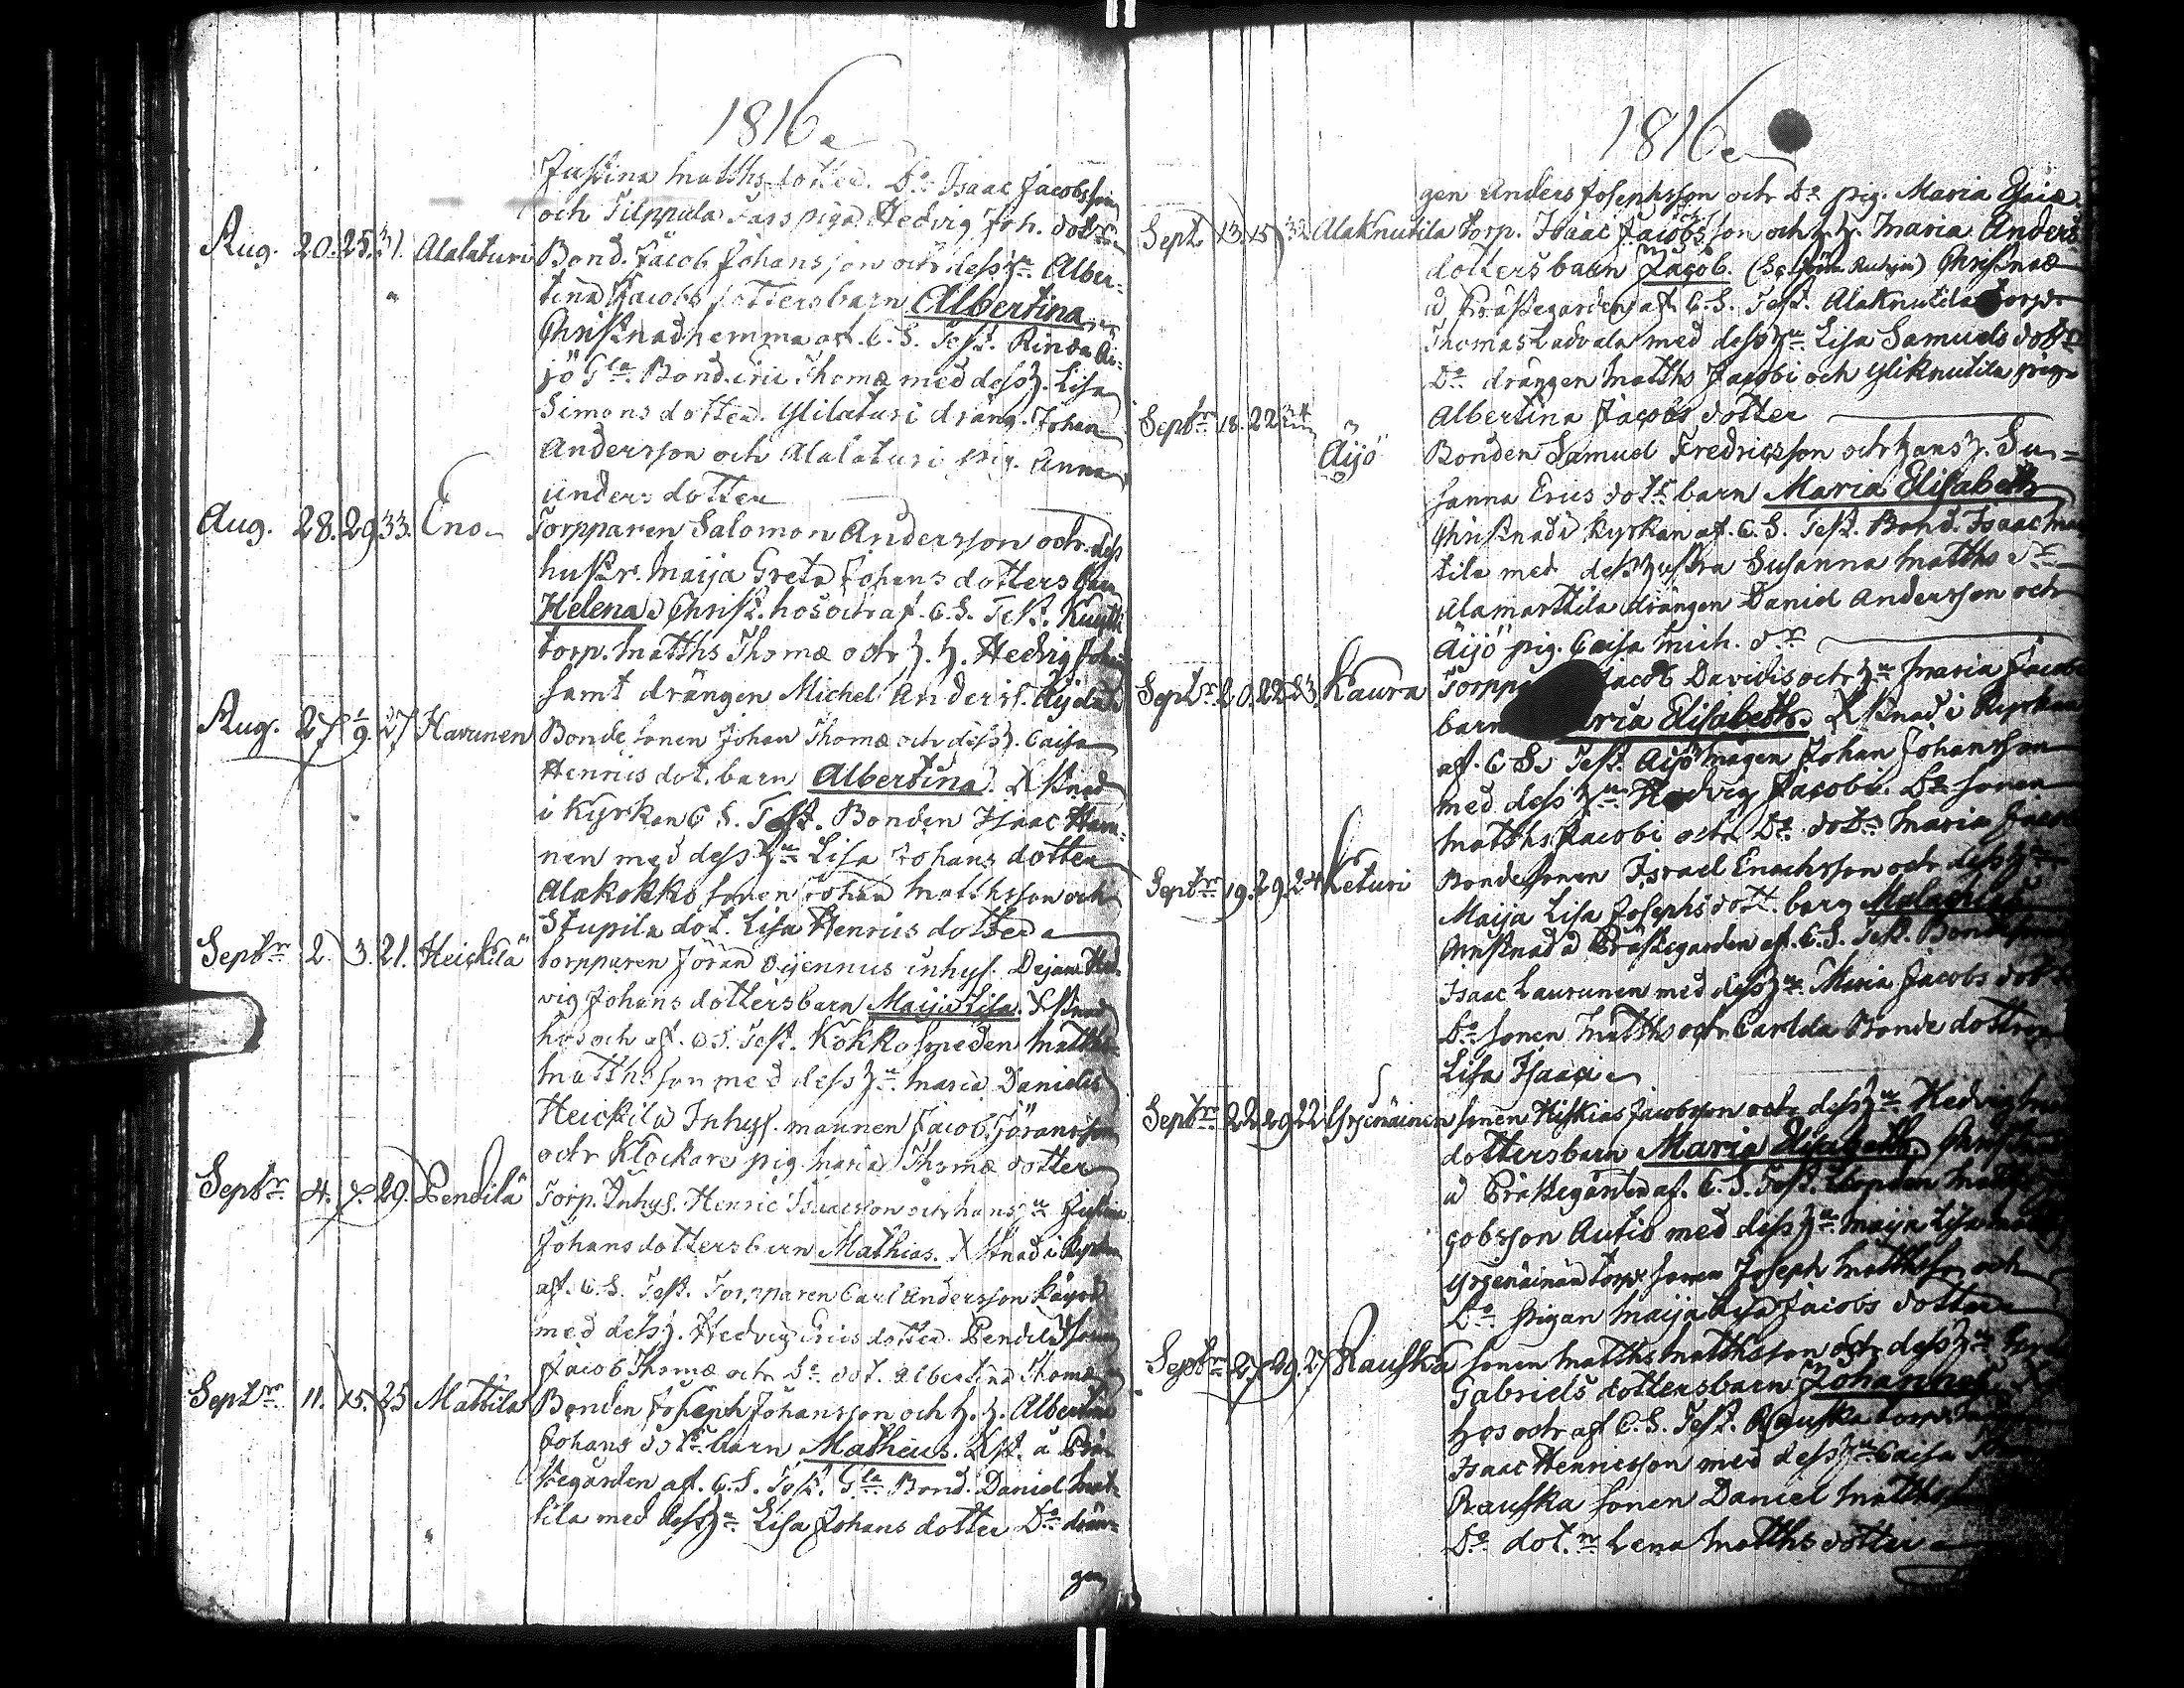 1816
Justina Matths dotter. Do Isaac Jacobsson
och Tilppula Tass piga Hedvig Joh. dotr
Aug. 20. 25. 31. Alalaturi Bond. Jacob Johansson och dess Hu Alber-
tina Jacobs dotters barn Albertina
Christnad hemma af C. S. Test. Rinda Äi-
jö Gla Bond. Eric Thomæ med dess H. Lisa
Simons dotter. Ylilaturi dräng. Johan
Andersson och Alalaturi pig. Anna
Anders dotter
Aug. 28. 29 33. Eno Torpparen Salomon Andersson och dess
hustr. Maija Greta Johans dotters barn
Helena Christ. hos och af C. S. Test.
torp. Matths Thomæ och H. H. Hedvig Johans
samt drängen Michel Anders.
Aug. 27 1/9. 27 Havunen Bonde sonen Johan Thomæ och dess H. Caisa
Henrics dot. barn Albertina. Xstnad
i Kyrkan C. S. Test. Bonden Isaac Havu-
nen med dess Hu Lisa Johans dotter
Alakokko sonen Johan Matthsson och
Stupila dot. Lisa Henrics dotter
Septbr 2. 3. 21. Heickilä torpparen Jöran Oijennus inhys. Dejan Hed-
vig Johans dotters barn Maija Lisa. Xstnad
hos och af C. S. Test. Kokko smeden Matths
Matthsson med dess Hu Maria Daniels
Heickilä Inhys. mannen Jacob Jöransson
och Klockare pig. Maria Thomæ dotter
Septbr 4. 8. 29. Pendilä Torp. Inhys. Henric Isaacsson och hans Hu Justina
Johans dotters barn Mathias. Xstnad i Kyrkan
af C. S. Test. Torpparen Carl Andersson
med dess H. Hedvig Erics dotter. Pendilä sonen
Jacob Thomæ och Do dot. Albertina Thomæ
Septbr 11. 15. 25 Mattila Bonden Joseph Johansson och H. H. Albertina
Johans dotr barn Matheus. Xst. å Prä-
stegården af C. S. Test. Gla Bond. Daniel Mat-
tila med dess Hu Lisa Johans dotter Do drän-
gen
1816
gen Anders Josephsson och Do pig. Maria Esaiæ
Sept. 13. 15 32 Alaknutila torp. Isaac Jacobsson och H. H. Maria Anders
dotters barn Jacob. Christnad
å Prästegården af C. S. Test. Alaknutila torp.
Thomas Ladvala med dess Hu Lisa Samuels dotr
Do drängen Matths Jacobi och Yliknutila pig.
Albertina Jacobs dotter
Septbr 18. 22 34 Äijö Bonden Samuel Fredricsson och hans H. Su-
sanna Erics dotr barn Maria Elisabeth
Christnad i Kyrkan af C. S. Test. Bond. Isaac Mar
tila med dess hustra Susanna Matths dr
Alamarttila drängen Daniel Andersson och
Äijö pig. Caisa Mich. dr
Septbr 20. 22 23. Kaura Torppa Jacob Davidis och Hu Maria Jacobs
barn ria Elisabeth. Xstnad i Kyrkan
af C. S. Test. Äijö mågen Johan Johansson
med dess Hu Hedvig Jacobi. Do sonen
Matths Jacobi och Do dotr Maria Jacobi
Septbr 19. 29. 24 Keturi Bonde sonen Israel Enochsson och dess Hu
Maija Lisa Josephs dott. barn Malachias
Christnad å Prästegården af C. S. Test. Bonde sonen
Isaac Laurunen med dess Hu Maria Jacobs dotr
Do sonen Matths och Carlda Bonde dottren
Lisa Isaaci
Septbr 22 29 22 Yrjenäinen sonen Hiskias Jacobsson och dess Hu Hedvig
dotters barn Maria Elisabeth. Christnad
å Prästegården af C. S. Test.
cobsson Autio med dess Hu Maija Lisa
Yrjenäinen torp. sonen Joseph Matthsson och
Do pigan Maija Lisa Jacobs dotter
Septbr 27 29. 27 Rauska sonen Matths Matthsson och dess Hu
Gabriels dotters barn Johannes.
hos och af C. S. Test. Rauska torp.
Isaac Henricsson med dess Hu Caisa
Rauska sonen Daniel Matths
Do dot.r Lena Matths dotter